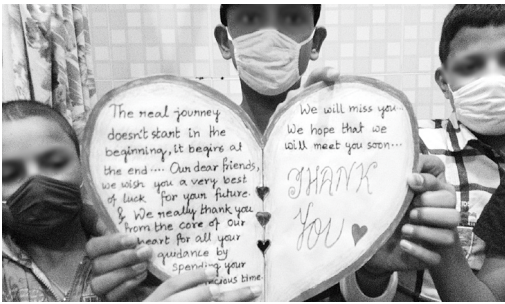 The real journey
doesn't start in the
beginning, it begins at
the end.... Our dear friends,
we wish you a very best
of luck for your future.
& We really thank you
from the core of our
heart for all your
guidance by
spending your
precious time.
We will miss you...
We hope that we
will meet you soon...
THANK
YOU